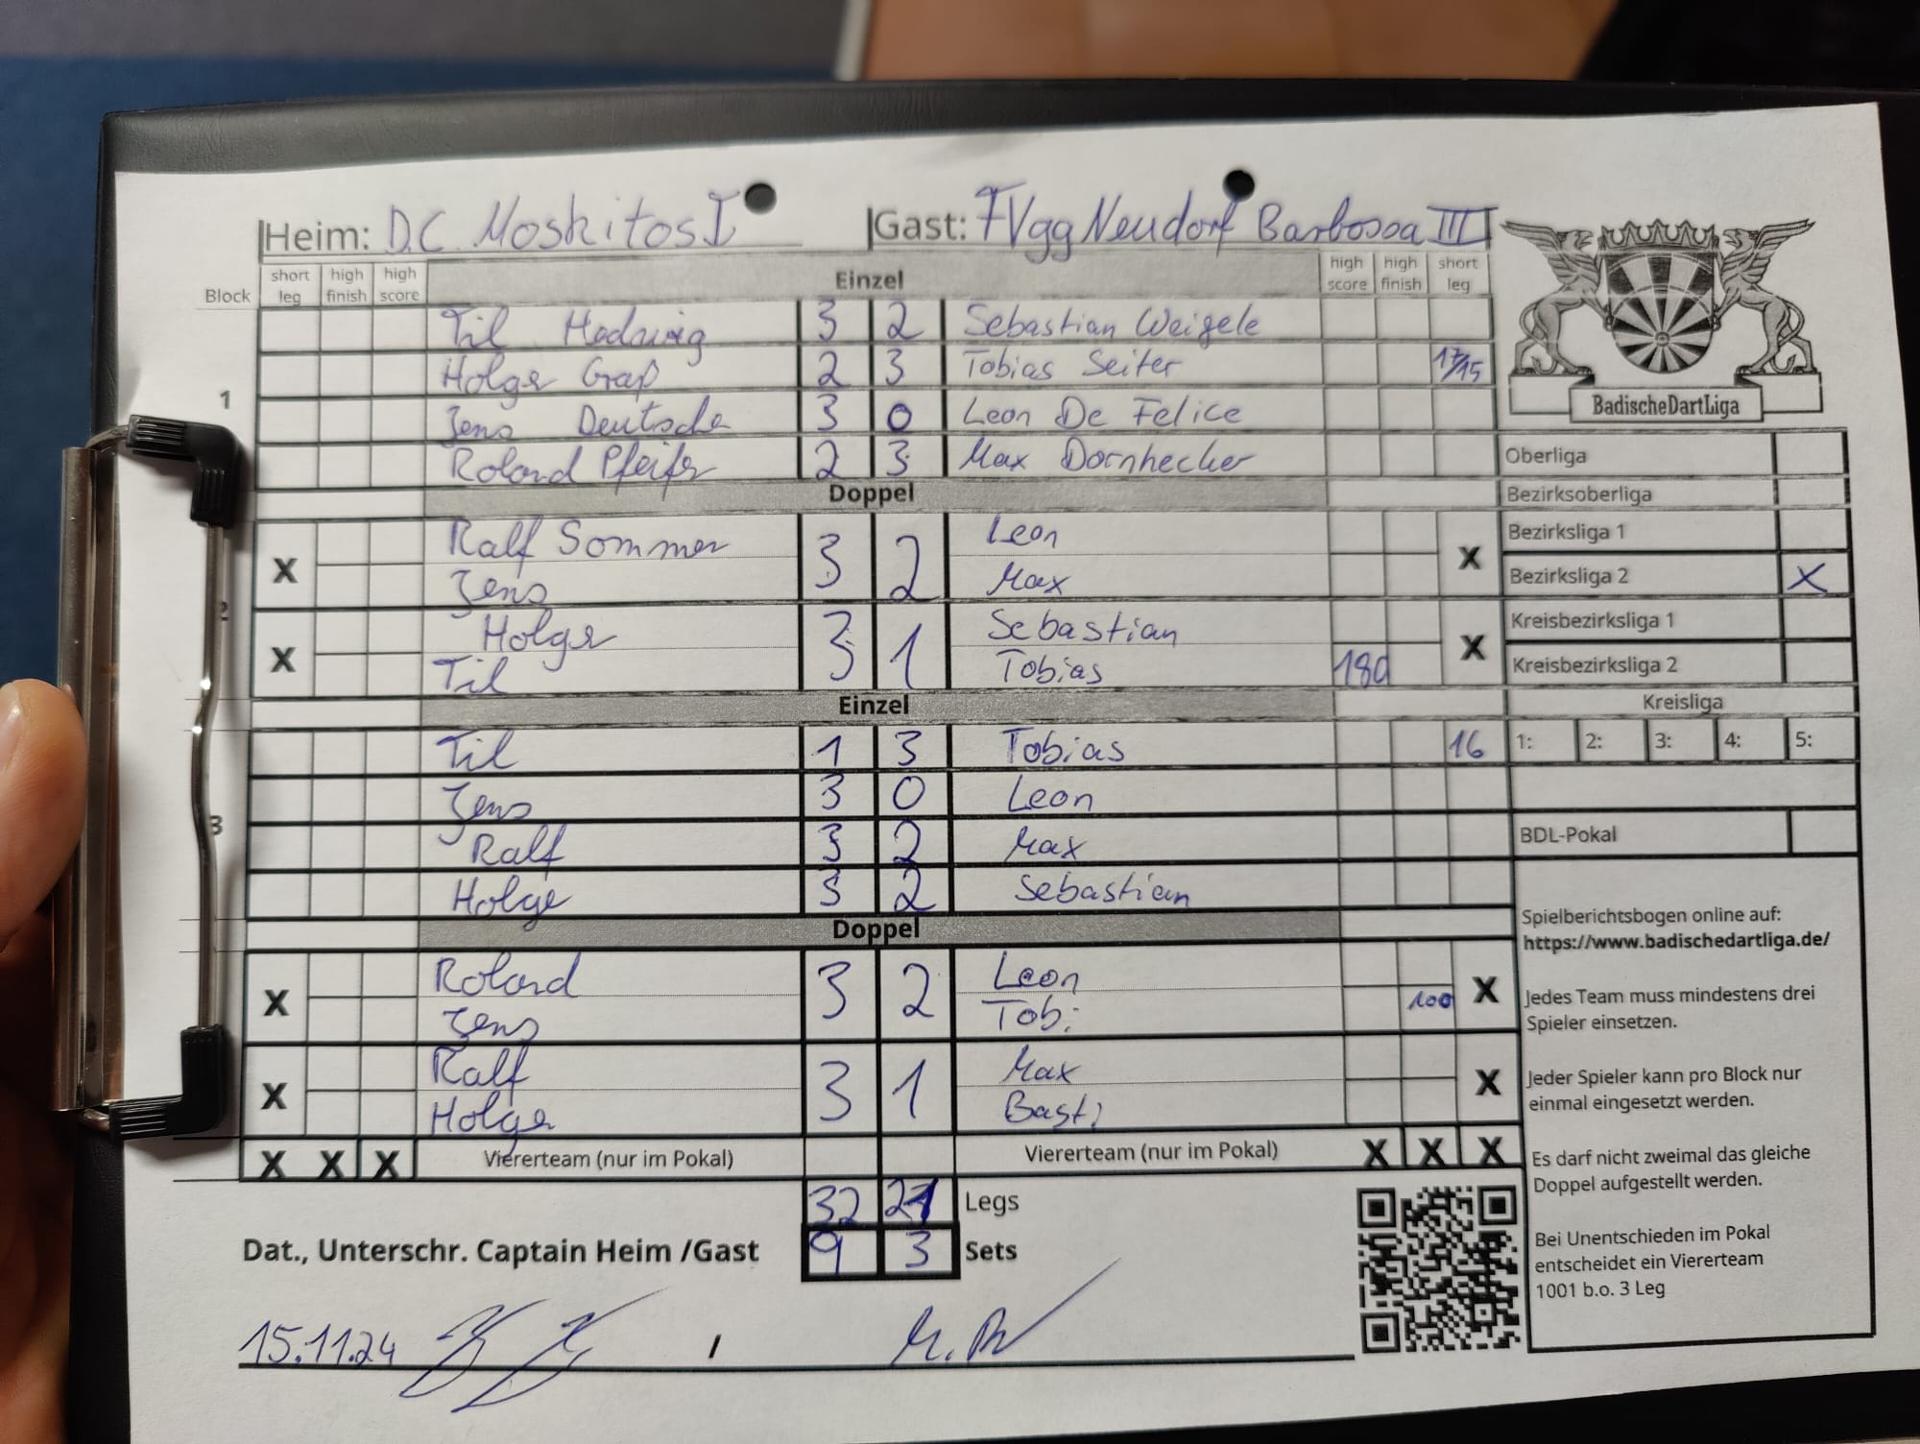 Heim: D.C. Moskitos I Gast: FVgg Neudorf Barbossa III
Block short leg high finish high score Einzel high score high finish short leg
Til Hadwig 3 2 Sebastian Weigele
Holger Graß 2 3 Tobias Seiter 17/15
1
Jens Deutsche 3 0 Leon De Felice
BadischeDartLiga
Roland Pfeifer 2 3 Max Dornhecker
Oberliga
Doppel
Bezirksoberliga
Ralf Sommer 3 2 Leon
X Jens Max X
Bezirksliga 1
Bezirksliga 2 X
2
Holger 3 1 Sebastian
X Til Tobias 180 X
Kreisbezirksliga 1
Kreisbezirksliga 2
Einzel
Kreisliga
Til 1 3 Tobias 16
1: 2: 3: 4: 5:
Jens 3 0 Leon
3
Ralf 3 2 Max
BDL-Pokal
Holge 3 2 Sebastian
Doppel
Spielberichtsbogen online auf:
https://www.badischedartliga.de/
Roland 3 2 Leon
X Jens Tobi 100 X
Jedes Team muss mindestens drei
Spieler einsetzen.
Ralf 3 1 Max
X Holge Basti X
Jeder Spieler kann pro Block nur
einmal eingesetzt werden.
X X X Viererteam (nur im Pokal) Viererteam (nur im Pokal) X X X
Es darf nicht zweimal das gleiche
Doppel aufgestellt werden.
32 21 Legs
Dat., Unterschr. Captain Heim /Gast 9 3 Sets
Bei Unentschieden im Pokal
entscheidet ein Viererteam
1001 b.o. 3 Leg
15.11.24 /